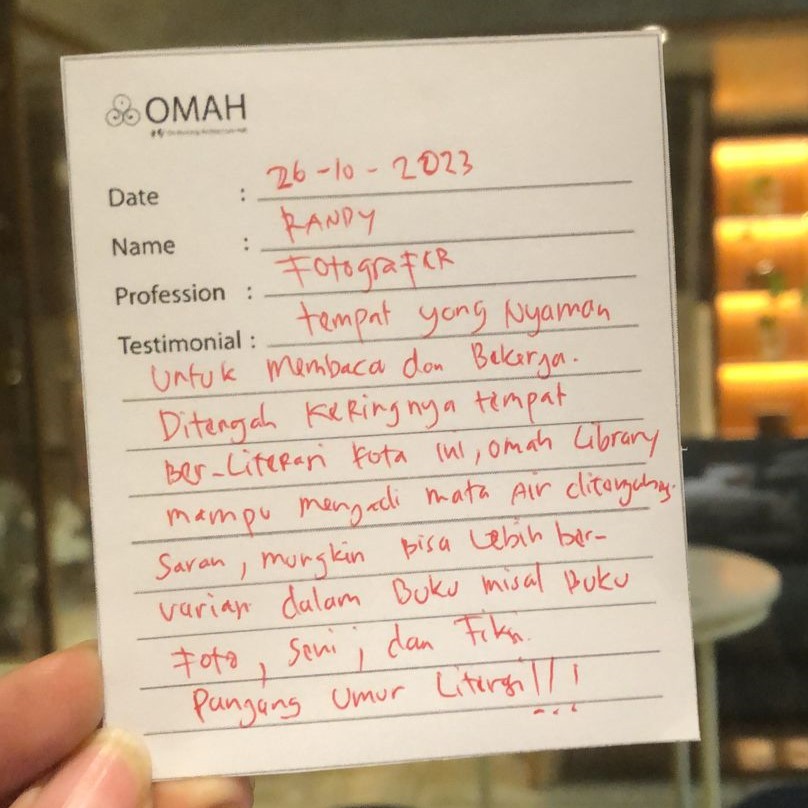 OMAH
Date : 26-10-2023
Name : RANDY
Profession : FotograFER
Testimonial : tempat yang Nyaman
Untuk membaca dan Bekerja.
Ditengah Keringnya tempat
Ber-Literasi Kota ini, omah Library
mampu mengadi mata Air ditengahnya.
Saran, mungkin Bisa Lebih ber-
varian dalam Buku misal Buku
Foto, Seni, dan Fiksi.
Pangang Umur Literasi!!!